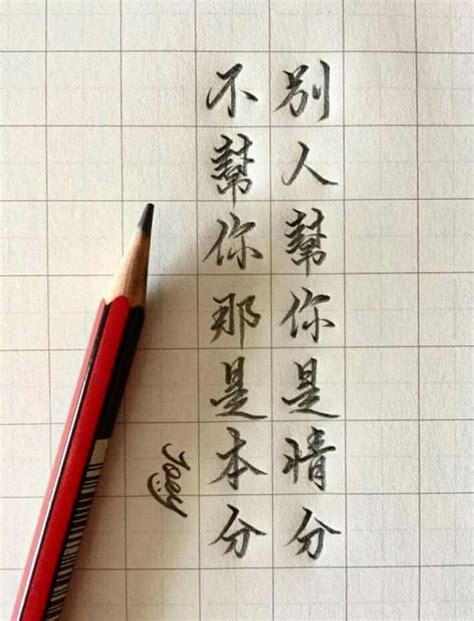 別人幫你是情分
不幫你那是本分
Joey